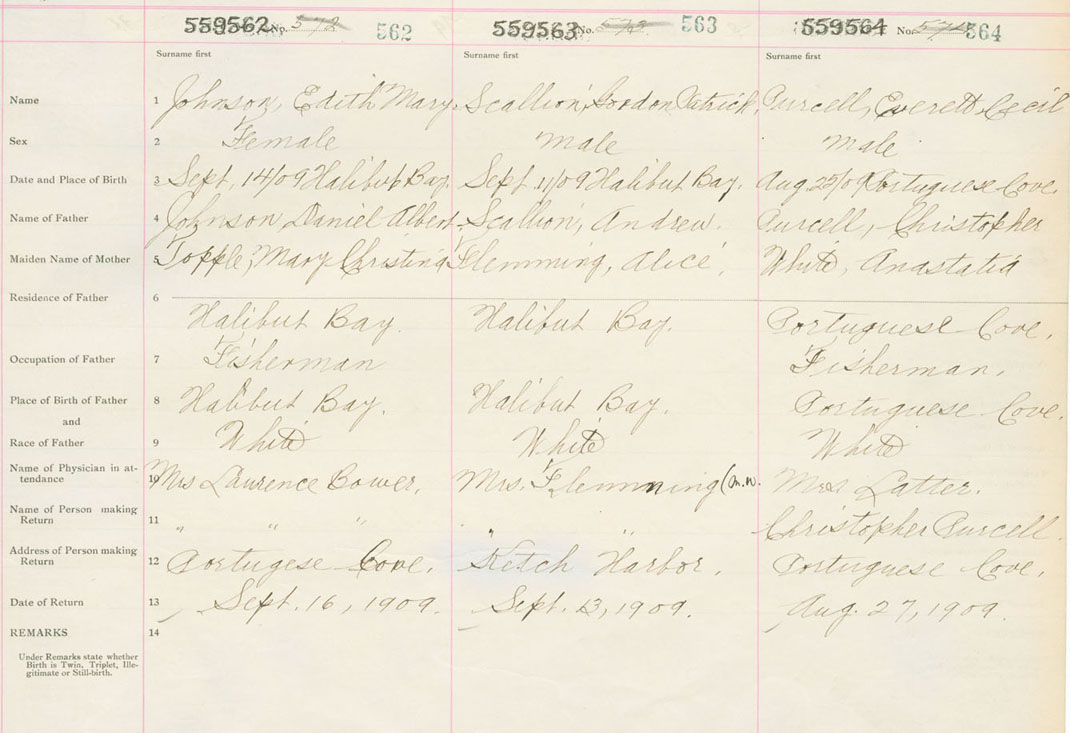 559562 No. 572 562 559563 No. 573 563 559564 No. 574 564
Surname first Surname first Surname first
Name 1 Johnson, Edith Mary. Scallion, Gordon Patrick, Purcell, Everett Cecil
Sex 2 Female Male Male
Date and Place of Birth 3 Sept. 14/09 Halibut Bay. Sept 11/09 Halibut Bay. Aug 25/09 Portuguese Cove.
Name of Father 4 Johnson, Daniel Albert. Scallion, Andrew. Purcell, Christopher
Maiden Name of Mother 5 Topple, Mary Christina Flemming, Alice, White, Anastatia
Residence of Father 6
Halibut Bay. Halibut Bay. Portuguese Cove.
Occupation of Father 7 Fisherman Fisherman.
Place of Birth of Father 8 Halibut Bay. Halibut Bay. Portuguese Cove.
and
Race of Father 9 White White White
Name of Physician in at-
tendance 10 Mrs Laurence Bower, Mrs. Flemming (m.w. Mrs Latter.
Name of Person making
Return 11 " " " " " Christopher Purcell.
Address of Person making
Return 12 Portugese Cove. Ketch Harbor. Portuguese Cove.
Date of Return 13 Sept. 16, 1909. Sept. 13, 1909. Aug. 27, 1909.
REMARKS 14
Under Remarks state whether
Birth is Twin, Triplet, Ille-
gitimate or Still-birth.